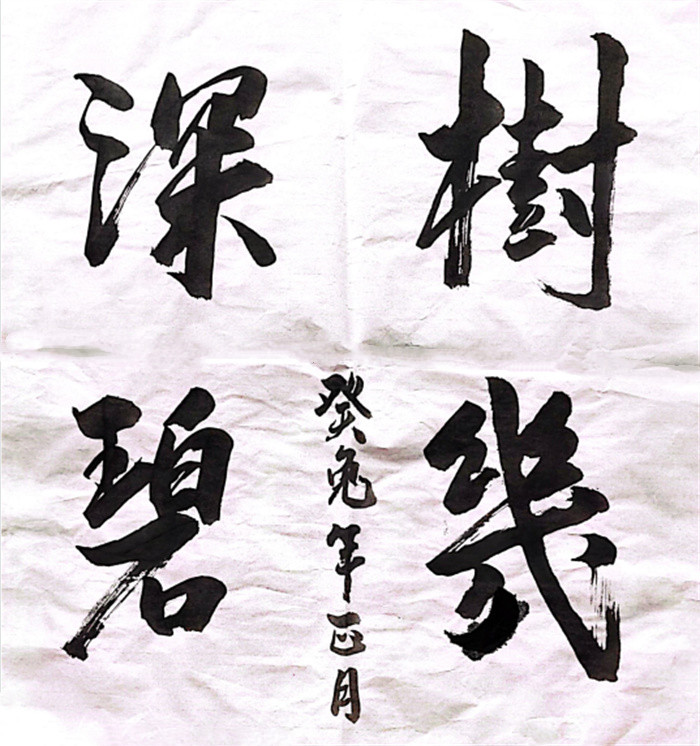 樹幾
深碧
癸兔年正月